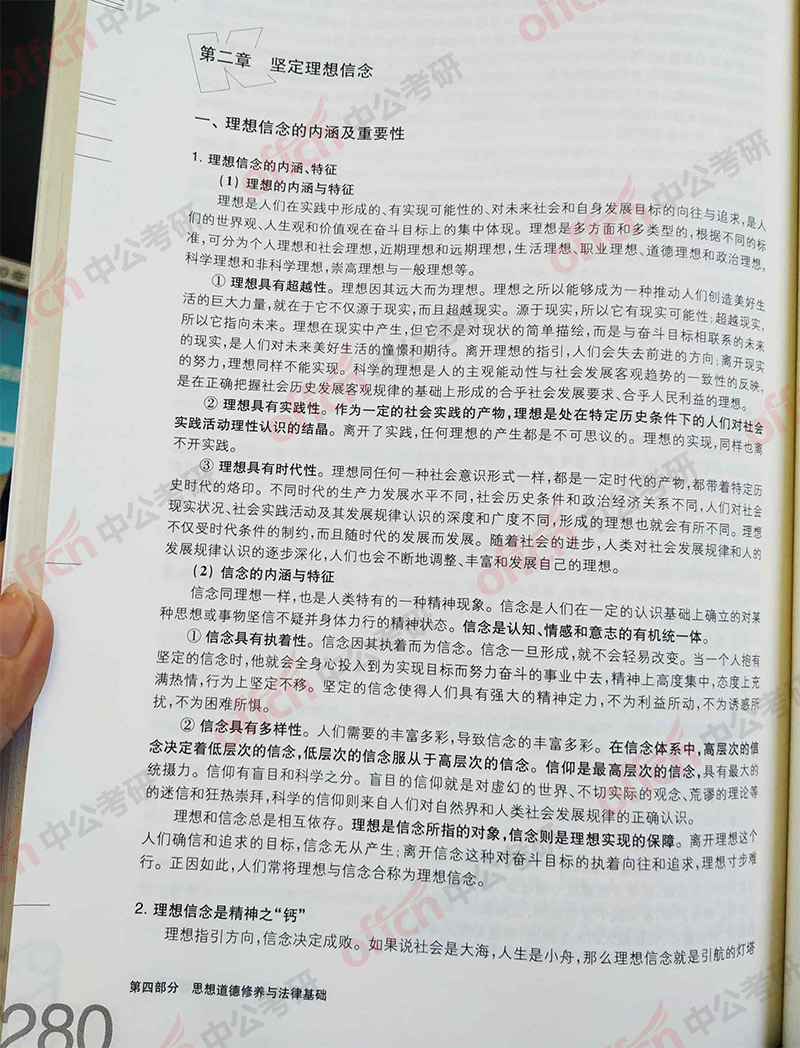 第二章 坚定理想信念
一、理想信念的内涵及重要性
1. 理想信念的内涵、特征
(1) 理想的内涵与特征
理想是人们在实践中形成的、有实现可能性的、对未来社会和自身发展目标的向往与追求,是人
们的世界观、人生观和价值观在奋斗目标上的集中体现。理想是多方面和多类型的,根据不同的标
准,可分为个人理想和社会理想,近期理想和远期理想,生活理想、职业理想、道德理想和政治理想,
科学理想和非科学理想,崇高理想与一般理想等。
① 理想具有超越性。理想因其远大而为理想。理想之所以能够成为一种推动人们创造美好生
活的巨大力量,就在于它不仅源于现实,而且超越现实。源于现实,所以它有现实可能性;超越现实,
所以它指向未来。理想在现实中产生,但它不是对现状的简单描绘,而是与奋斗目标相联系的未来
的现实,是人们对未来美好生活的憧憬和期待。离开理想的指引,人们会失去前进的方向;离开现实
的努力,理想同样不能实现。科学的理想是人的主观能动性与社会发展客观趋势的一致性的反映,
是在正确把握社会历史发展客观规律的基础上形成的合乎社会发展要求、合乎人民利益的理想。
② 理想具有实践性。作为一定的社会实践的产物,理想是处在特定历史条件下的人们对社会
实践活动理性认识的结晶。离开了实践,任何理想的产生都是不可思议的。理想的实现,同样也离
不开实践。
③ 理想具有时代性。理想同任何一种社会意识形式一样,都是一定时代的产物,都带着特定历
史时代的烙印。不同时代的生产力发展水平不同,社会历史条件和政治经济关系不同,人们对社会
现实状况、社会实践活动及其发展规律认识的深度和广度不同,形成的理想也就会有所不同。理想
不仅受时代条件的制约,而且随时代的发展而发展。随着社会的进步,人类对社会发展规律和人的
发展规律认识的逐步深化,人们也会不断地调整、丰富和发展自己的理想。
(2) 信念的内涵与特征
信念同理想一样,也是人类特有的一种精神现象。信念是人们在一定的认识基础上确立的对某
种思想或事物坚信不疑并身体力行的精神状态。信念是认知、情感和意志的有机统一体。
① 信念具有执着性。信念因其执着而为信念。信念一旦形成,就不会轻易改变。当一个人抱有
坚定的信念时,他就会全身心投入到为实现目标而努力奋斗的事业中去,精神上高度集中,态度上充
满热情,行为上坚定不移。坚定的信念使得人们具有强大的精神定力,不为利益所动,不为诱惑所
扰,不为困难所惧。
② 信念具有多样性。人们需要的丰富多彩,导致信念的丰富多彩。在信念体系中,高层次的信
念决定着低层次的信念,低层次的信念服从于高层次的信念。信仰是最高层次的信念,具有最大的
统摄力。信仰有盲目和科学之分。盲目的信仰就是对虚幻的世界、不切实际的观念、荒谬的理论等
的迷信和狂热崇拜,科学的信仰则来自人们对自然界和人类社会发展规律的正确认识。
理想和信念总是相互依存。理想是信念所指的对象,信念则是理想实现的保障。离开理想这个
人们确信和追求的目标,信念无从产生;离开信念这种对奋斗目标的执着向往和追求,理想寸步难
行。正因如此,人们常将理想与信念合称为理想信念。
2. 理想信念是精神之“钙”
理想指引方向,信念决定成败。如果说社会是大海,人生是小舟,那么理想信念就是引航的灯塔
第四部分 思想道德修养与法律基础
280
offcn 中公考研